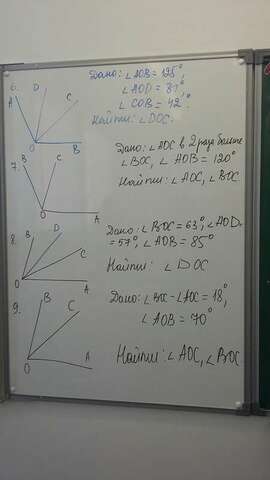 6. Дано: ∠AOB = 125°,
∠AOD = 81°,
∠COB = 42°.
Найти: ∠DOC.
A
D
C
O
B
7. Дано: ∠AOC в 2 раза больше
∠BOC, ∠AOB = 120°
Найти: ∠AOC, ∠BOC
B
C
O
A
8. Дано: ∠BOC = 63°, ∠AOD
= 57°, ∠AOB = 85°
Найти: ∠DOC
B
D
C
O
A
9. Дано: ∠BOC - ∠AOC = 18°,
∠AOB = 70°
Найти: ∠AOC, ∠BOC
B
C
O
A